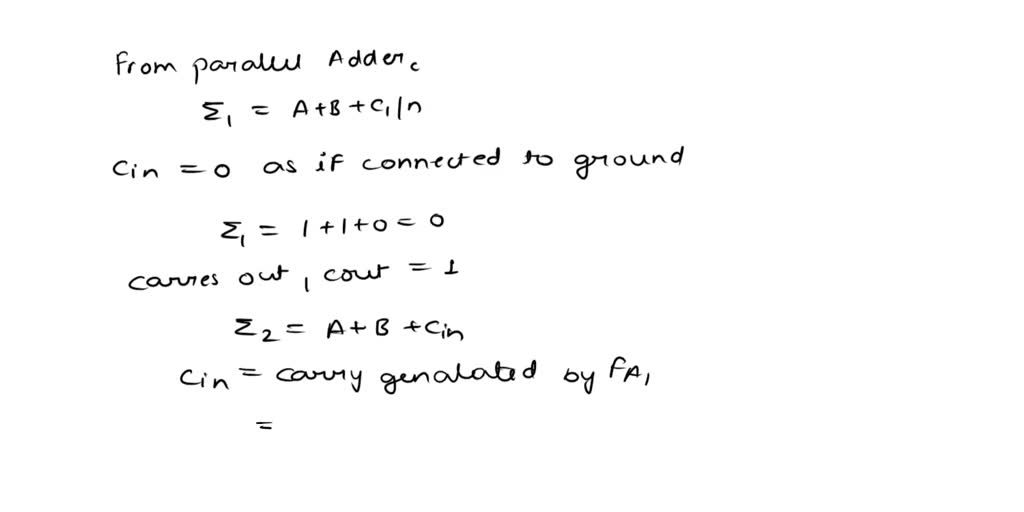 From parallel Adder,
Σ₁ = A+B+C₁/n
Cin = 0 as if connected to ground
Σ₁ = 1+1+0 = 0
carries out, cout = 1
Σ₂ = A+B+Cin
Cin = carry genalated by FA₁
=